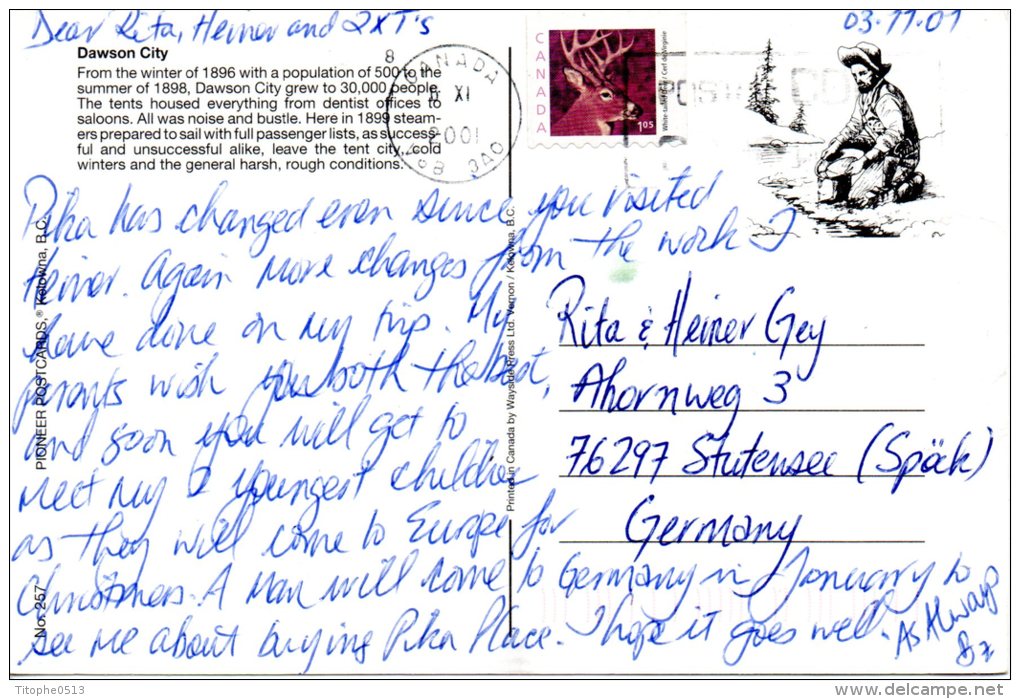 Dear Rita, Heiner and 2XT's
03.11.01
Dawson City
From the winter of 1896 with a population of 500 to the
summer of 1898, Dawson City grew to 30,000 people.
The tents housed everything from dentist offices to
saloons. All was noise and bustle. Here in 1899 steam-
ers prepared to sail with full passenger lists, as success-
ful and unsuccessful alike, leave the tent city, cold
winters and the general harsh, rough conditions.
CANADA
XI
2001
CANADA
1.05
White-tailed deer / Cerf de Virginie
Pika has changed even since you visited
Heiner. Again more changes from the work I
have done on my trip. My
parents wish you both the best,
and soon you will get to
meet my 2 youngest children
as they will come to Europe for
Christmas. A man will come to Germany in January to
see me about buying Pika Place. I hope it goes well.
As Always
Rita & Heiner Gey
Ahornweg 3
76297 Stutensee (Spöck)
Germany
No. 257
PIONEER POSTCARDS,® Kelowna, B.C.
Printed in Canada by Wayside Press Ltd. Vernon / Kelowna, B.C.
Titophe0513
delcampe.net